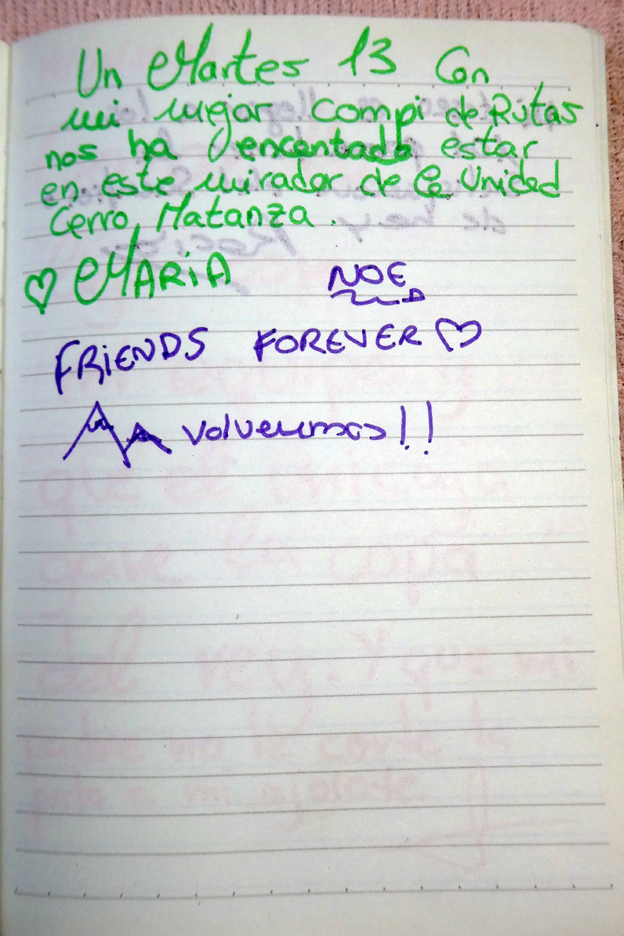 Un Martes 13 Con
mi mejor compi de Rutas
nos ha encantado estar
en este mirador de la Unidad
Cerro Matanza.
♡ MARiA NOE
FRiENDS FOREVER ♡
volveremos!!